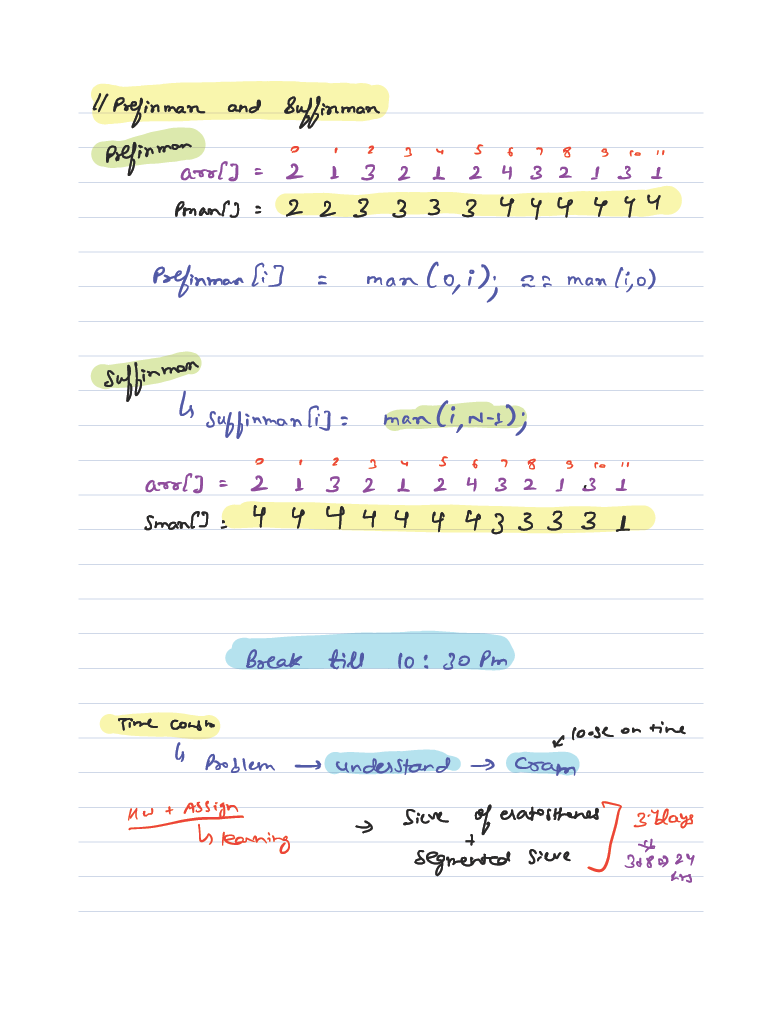 // Prefixmax and Suffixmax
Prefixmax
0 1 2 3 4 5 6 7 8 9 10 11
arr[] = 2 1 3 2 1 2 4 3 2 1 3 1
Pmax[] = 2 2 3 3 3 3 4 4 4 4 4 4
Prefixmax[i] = max(0,i); == max(i,0)
Suffixmax
↳ Suffixmax[i] = max(i,N-1);
0 1 2 3 4 5 6 7 8 9 10 11
arr[] = 2 1 3 2 1 2 4 3 2 1 3 1
Smax[] = 4 4 4 4 4 4 4 3 3 3 3 1
Break till 10:30 Pm
Time
↙ loose on time
↳ Problem → understand → Cram
HW + Assign
↳ learning
→ Sieve of eratosthenes
+
Segmented Sieve
3 days
24
hrs